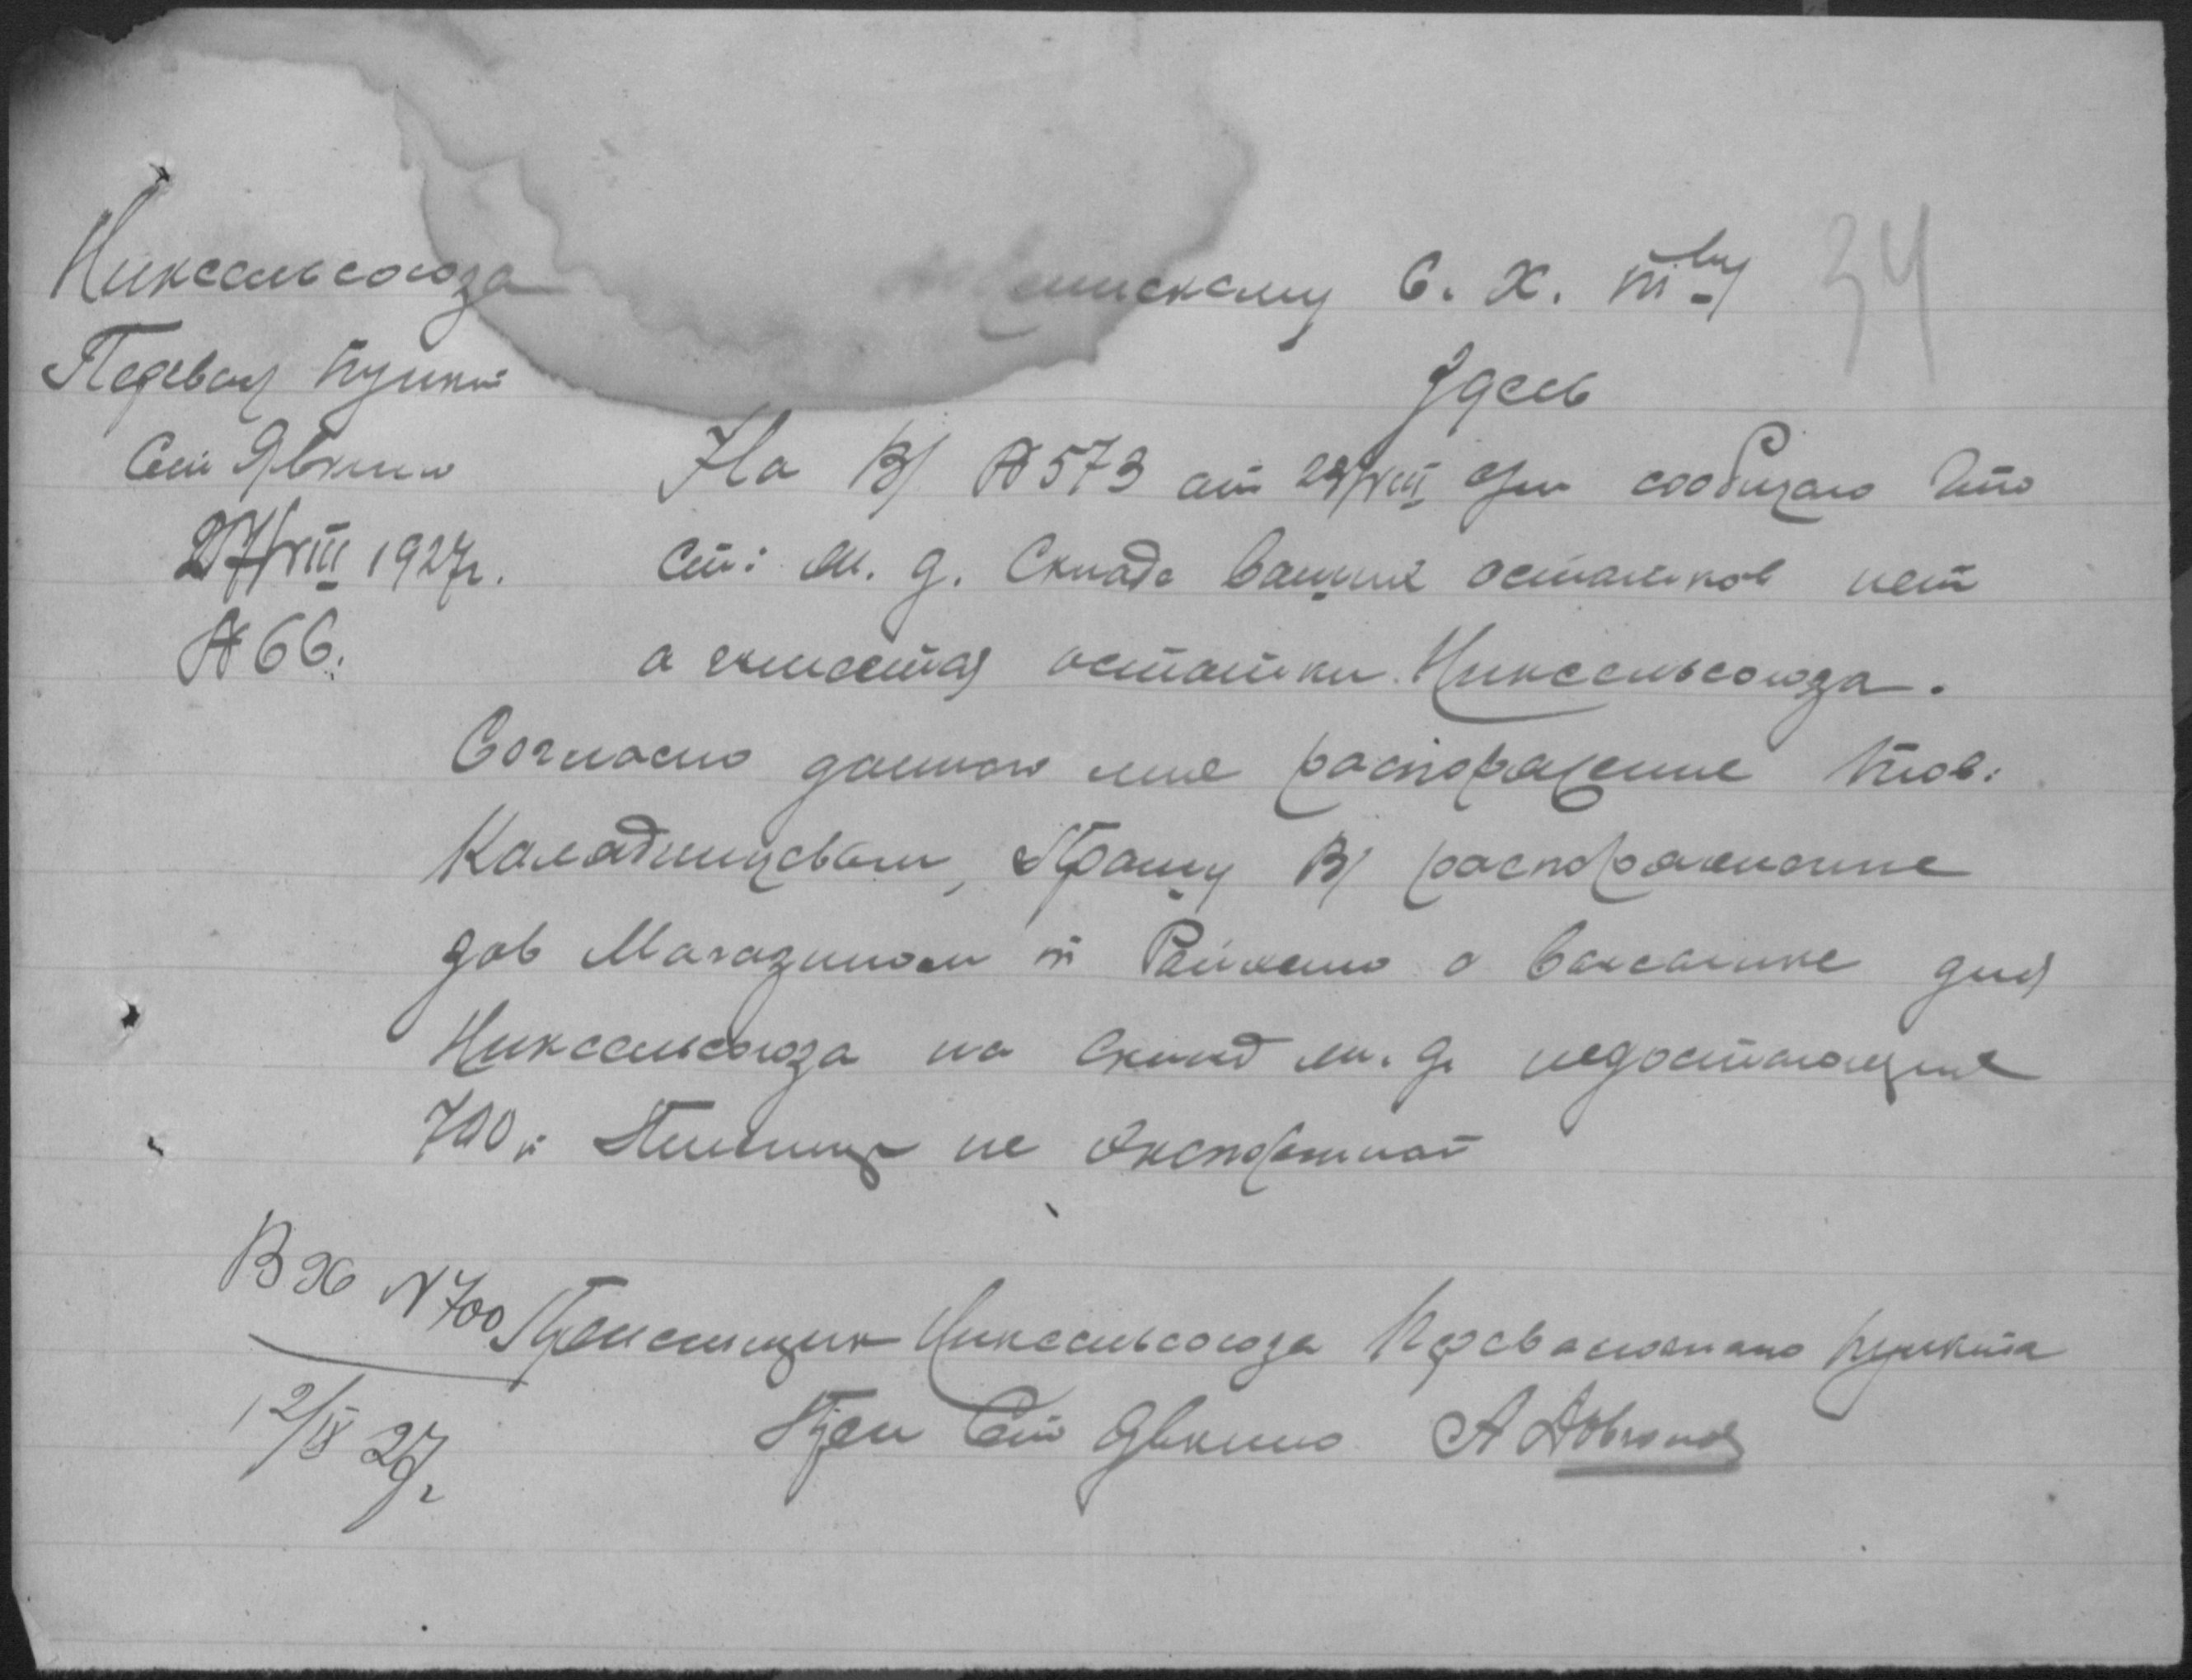 34
Никсельсоюза
Перевал пункт
Ст Явкино
27/VIII 1927г.
№ 66.
С. Х. т-ву
Здесь
На В/ № 573 от 29/VIII сообщаю что
Ст: м. д. Складе Ваших остатков нет
а имеется остатки Никсельсоюза.
Согласно данного мне распоражение тов:
Прошу В/ распоражение
зав Магазином т о
Никсельсоюза на склад м. д. недостающие
700 п Пшеницы не Экспортной
Вх N 700
12/IX 27г.
Приемщик Никсельсоюза Перевалочного пункта
При Ст Явкино А